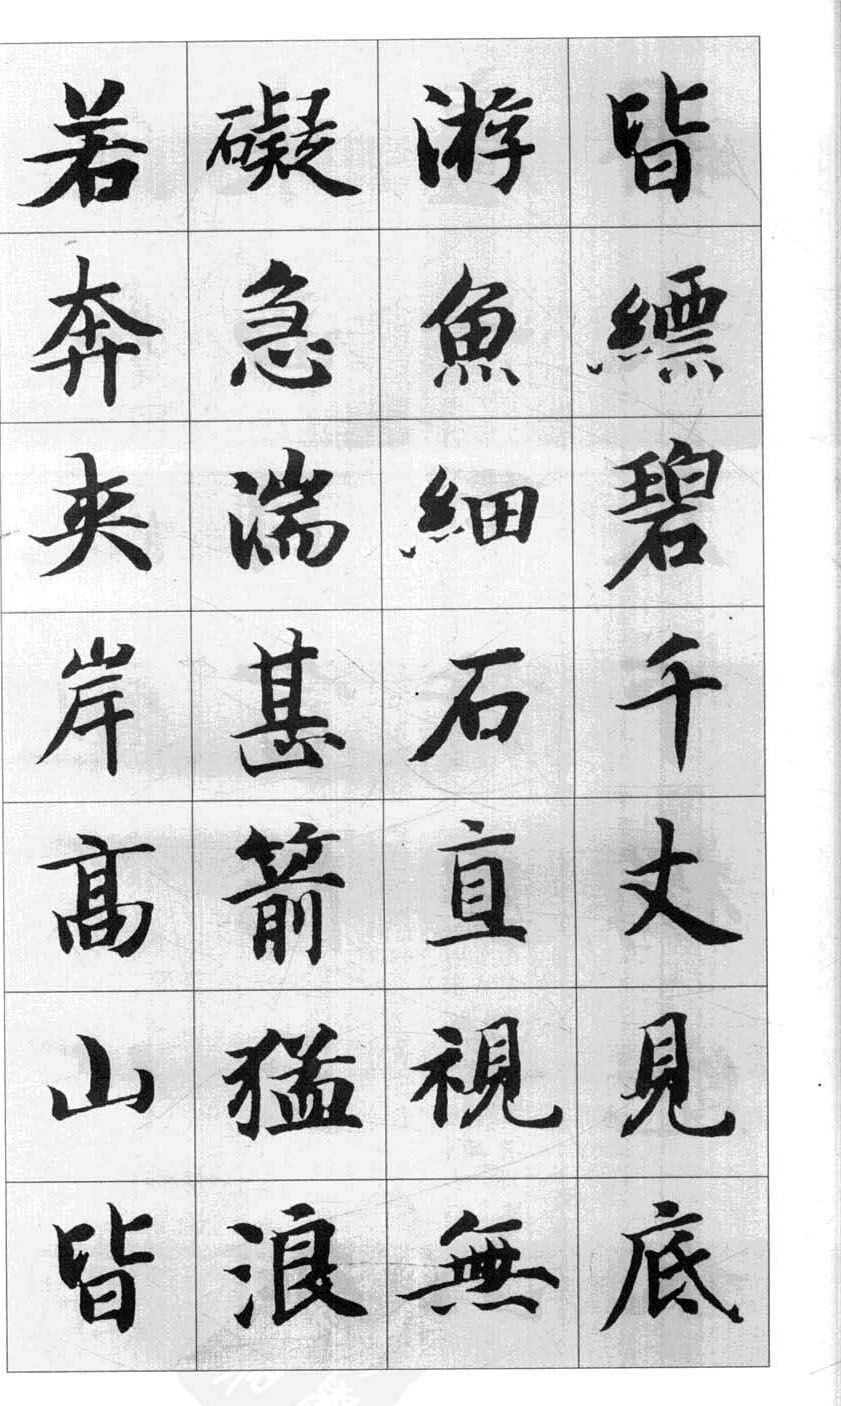 皆縹碧千丈見底
游魚細石直視無
礙急湍甚箭猛浪
若奔夾岸高山皆